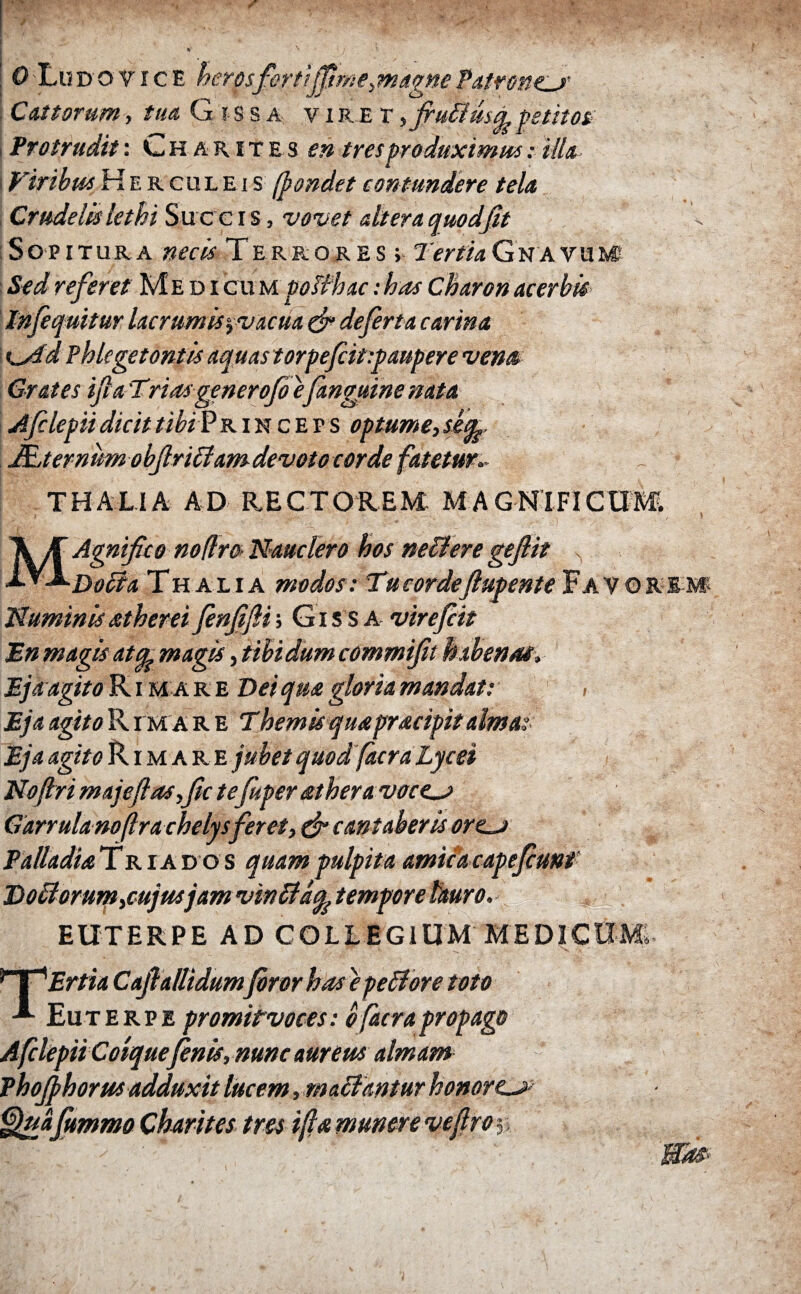 O LUDOVICE heros fortissime, magne Patrone
Cattorum, tua GISSA VIRET, fructúsq; petitos
Protrudit: CHARITES en tres produximus: illa
Viribus HERCULEIS spondet contundere tela
Crudelis lethi SUCCIS, vovet altera quod sit
SOPITURA necis TERRORES; Tertia GNAVUM
Sed referet MEDICUM posthac: has Charon acerbis
Insequitur lacrumis; vacua & deserta carina
Ad Phlegetontis aquas torpescit: paupere vena
Grates ista Trias generoso è sanguine nata
Asclepii dicit tibi PRINCEPS optume, séq;
Æternùm obstrictam devoto corde fatetur.
THALIA AD RECTOREM MAGNIFICUM.
MAgnifico nostro Nauclero hos nectere gestit
Docta THALIA modos: Tu corde stupente FAVOREM
Numinis ætherei sensisti; GISSA virescit
En magis atq; magis, tibi dum commisit habenas.
Eja agito RIMARE Dei quæ gloria mandat:
Eja agito RIMARE Themis quæ præcipit alma:
Eja agito RIMARE jubet quod sacra Lycei
Nostri majestas, sic te super æthera voce
Garrula nostra chelys feret, & cantaberis ore
Palladia TRIADOS quam pulpita amica capescunt
Doctorum, cujus jam vinctáq; tempore lauro.
EUTERPE AD COLLEGIUM MEDICUM.
TErtia Castallidum soror has è pectore toto
EUTERPE promit voces: ô sacra propago
Asclepii Coique senis, nunc aureus almam
Phosphorus adduxit lucem, mactantur honore
Quâ summo Charites tres ista munere vestro;
Has